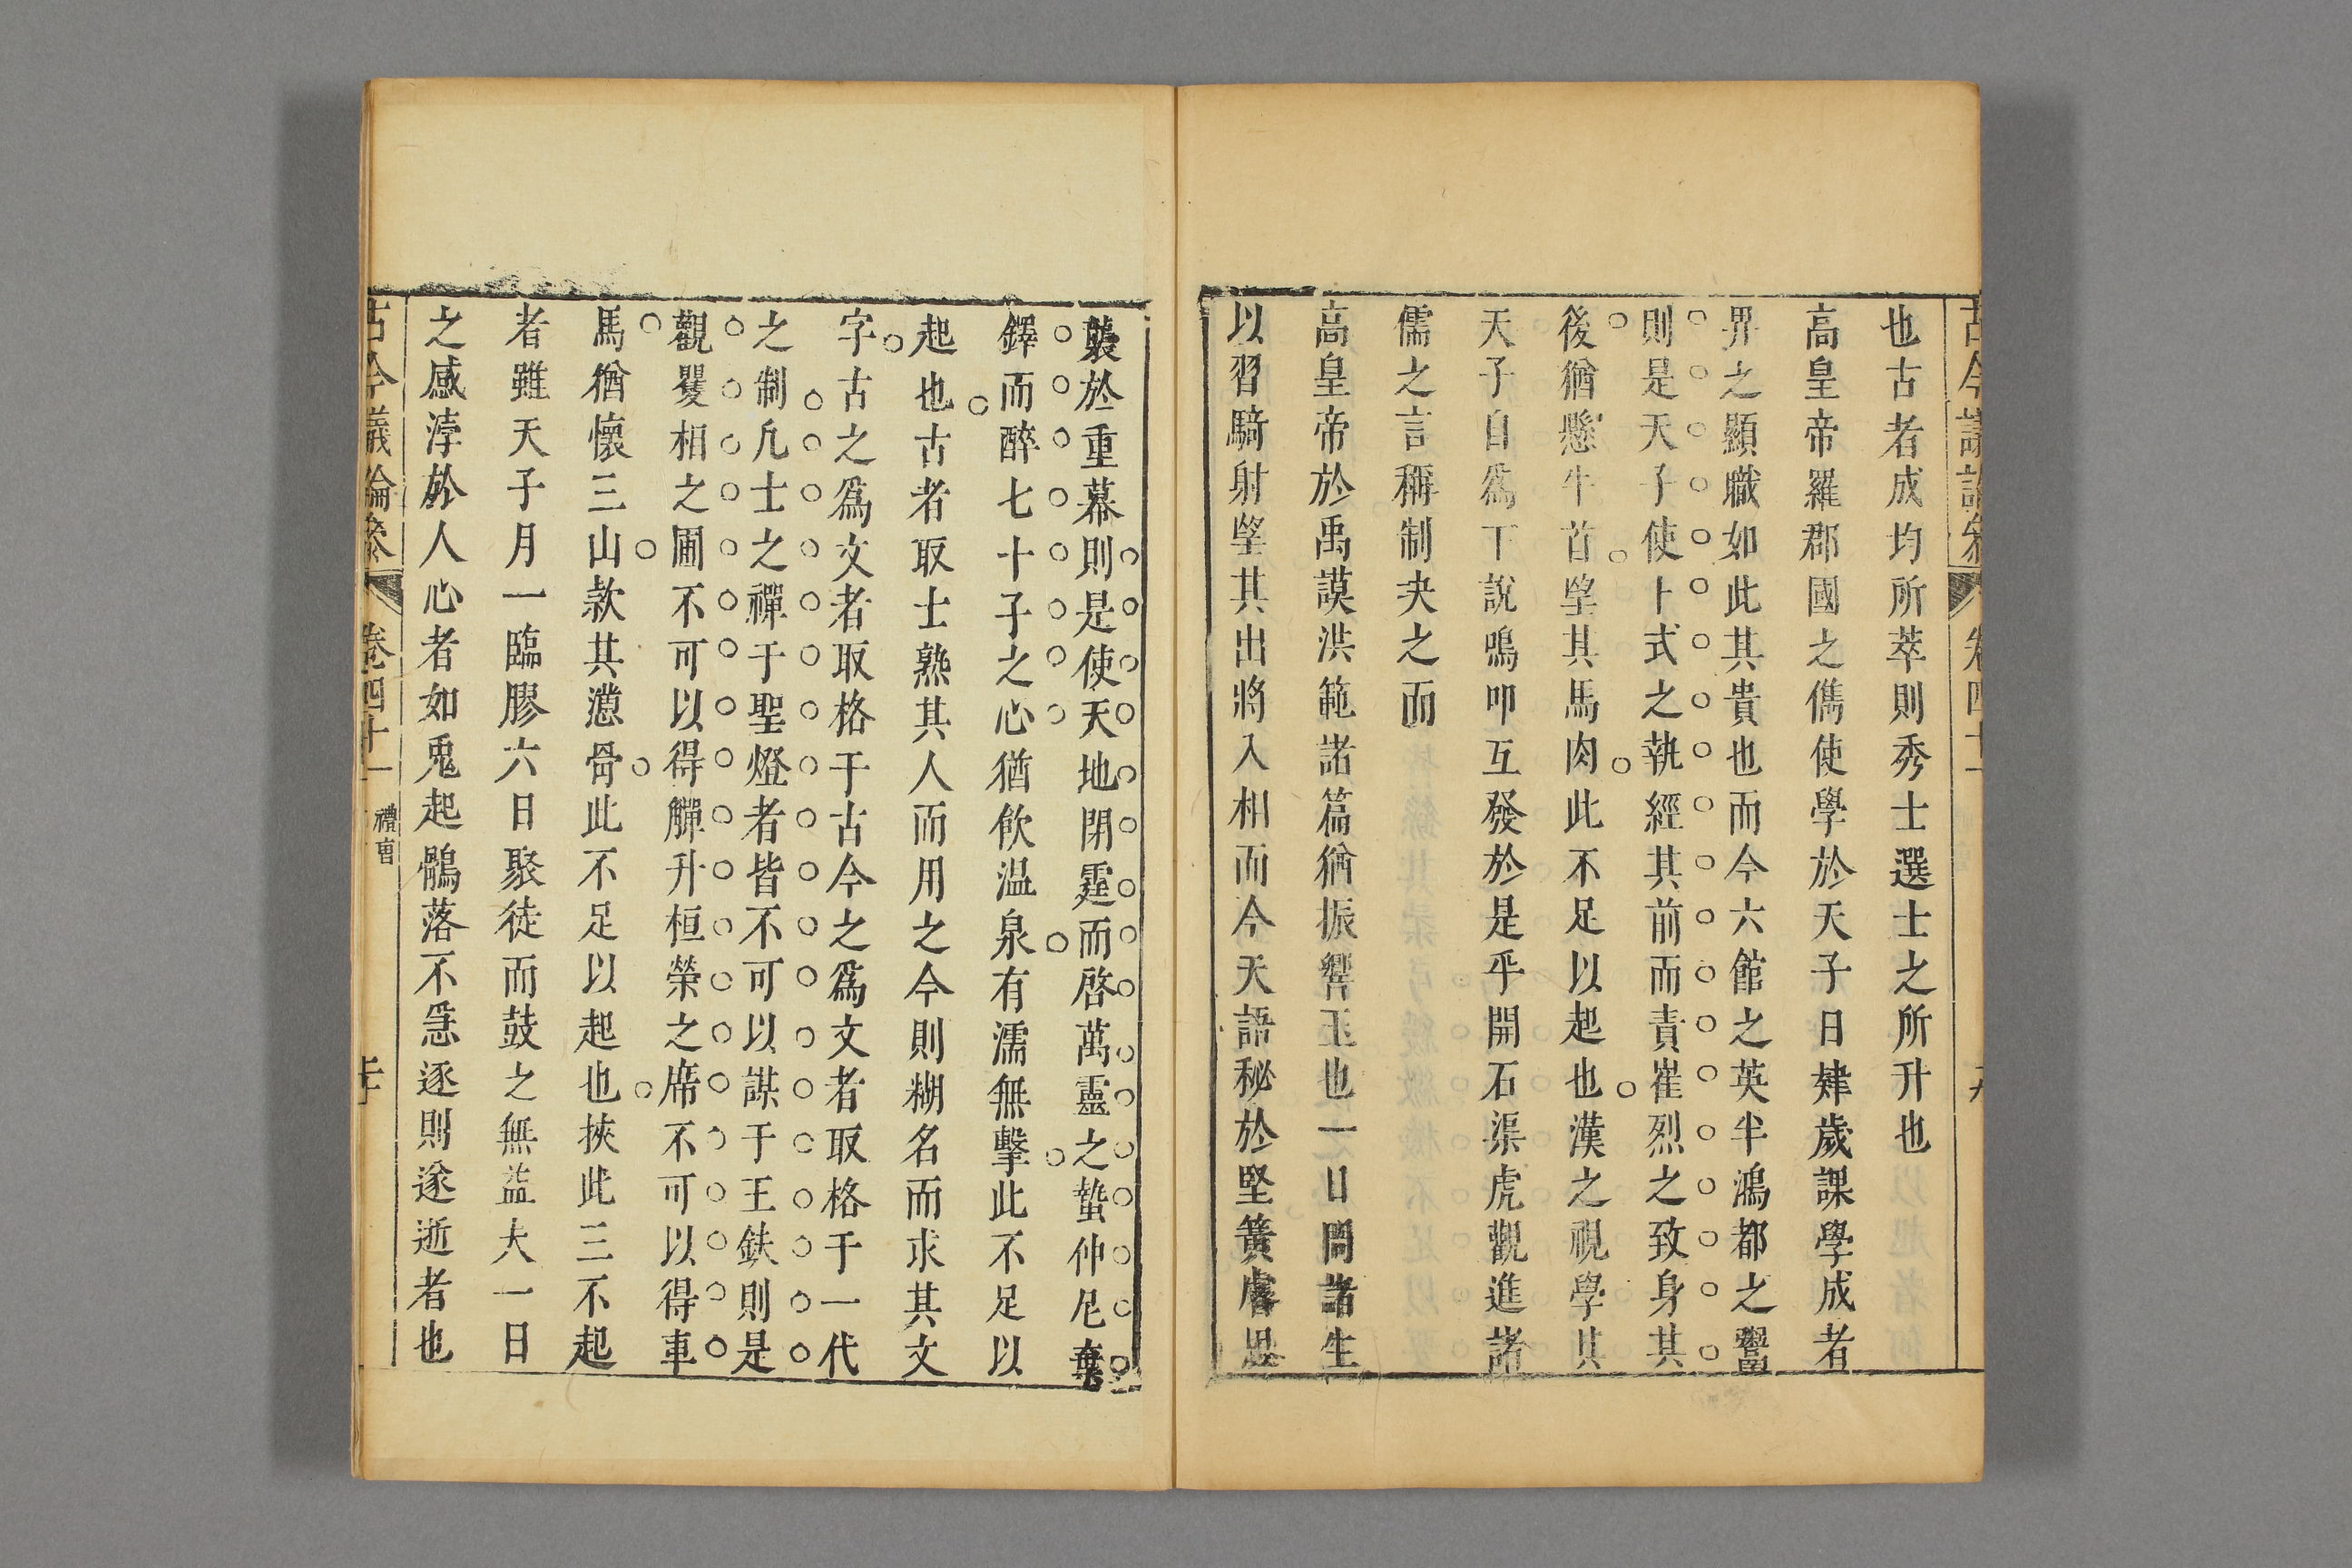 也古者成均所萃則秀士選士之所升也
高皇帝羅郡國之儁使學於天子日肄歲課學成者
畀之顯職如此其貴也而今六館之英半鴻都之鬻
則是天子使卜式之執經其前而責崔烈之致身其
後猶懸牛首望其馬肉此不足以起也漢之視學其
天子自為下說鳴叩互發於是乎開石渠虎觀進諸
儒之言稱制夬之而
高皇帝於禹謨洪範諸篇猶振響玉也一日問諸生
以習騎射望其出將入相而今天語秘於堅簧睿思
襲於重幕則是使天地閉霆而啓萬靈之蟄仲尼奪
鐸而醉七十子之心猶飲温泉有濡無擊此不足以
起也古者取士熟其人而用之今則糊名而求其文
字古之爲文者取格于古今之爲文者取格于一代
之制凡士之禪于聖燈者皆不可以謀于王鈇則是
觀矍相之圃不可以得觶升桓榮之席不可以得車
馬猶懷三山款其懣骨此不足以起也挾此三不起
者雖天子月一臨膠六日聚徒而鼓之無益夫一日
之感浡於人心者如兎起鶻落不急逐則遂逝者也
古今議論參 卷四十一 禮曺